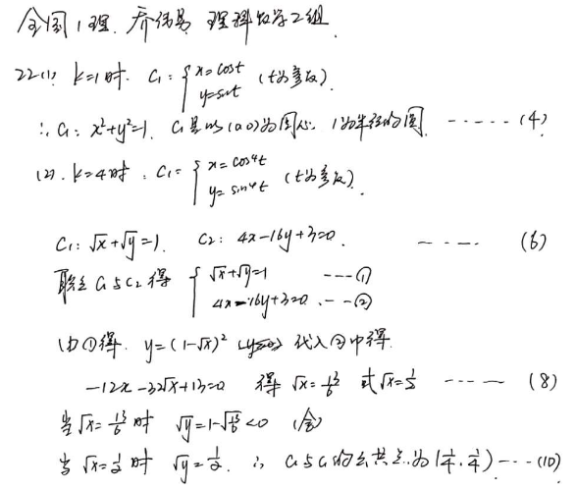 全国1理. 乔伟易 理科数学2组.
22(1) k=1时. C₁: { x=cost y=sint (t为参数).
∴ C₁: x²+y²=1. C₁是以(0,0)为圆心, 1为半径的圆. ······ (4)
(2). k=4时, C₁: { x=cos⁴t y=sin⁴t (t为参数).
C₁: √x+√y=1. C₂: 4x-16y+3=0. ······ (6)
联立C₁与C₂得 { √x+√y=1 ---① 4x-16y+3=0 ---②
由①得. y=(1-√x)² 代入②中得.
-12x-32√x+13=0 得 √x=13/6 或√x=1/2 ······ (8)
当√x=13/6时 √y=1-√13/6<0 (舍)
当√x=1/2时 √y=1/2. ∴ C₁与C₂的公共点为(1/4, 1/4) ···(10)